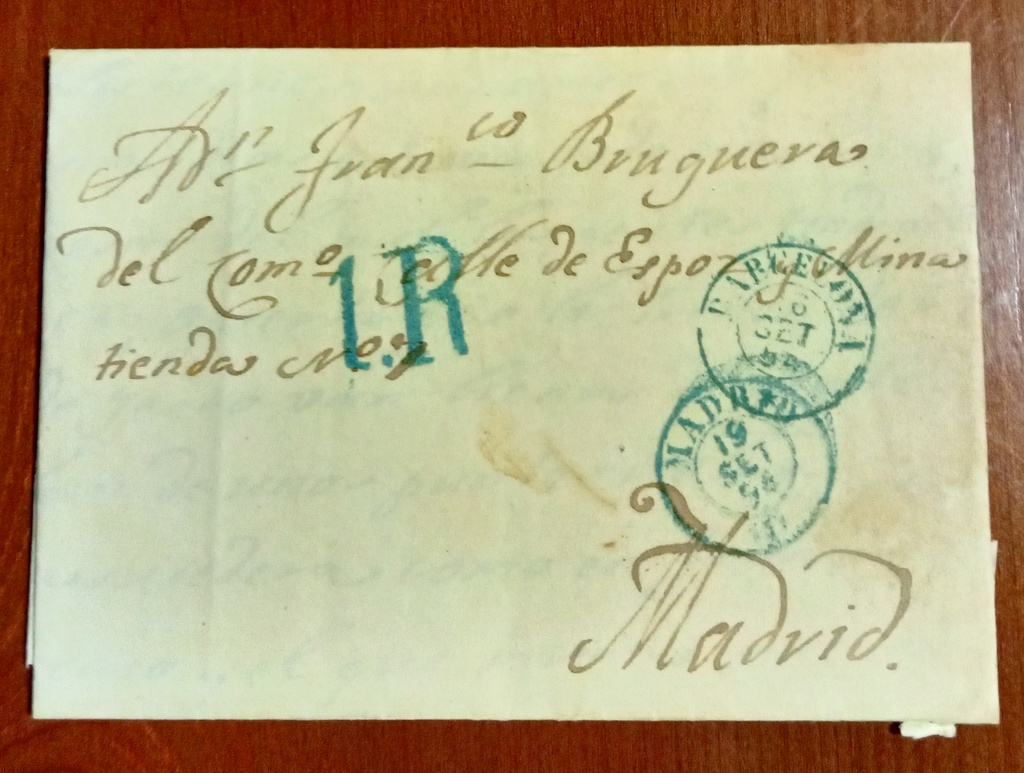 A Dn. Franco Bruguera
del Como. Calle de Espoz y Mina
tienda No. 7
1.R
BARCELONA
SET
MADRID
19
SET
Madrid.